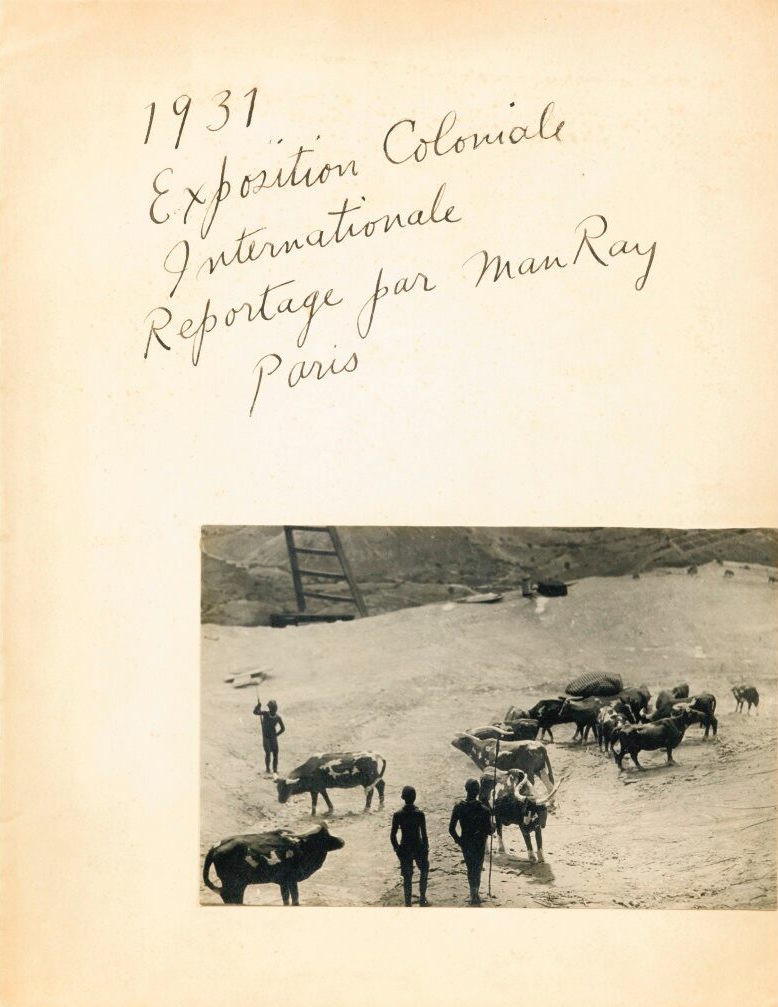 1931
Exposition Coloniale
Internationale
Reportage par Man Ray
Paris